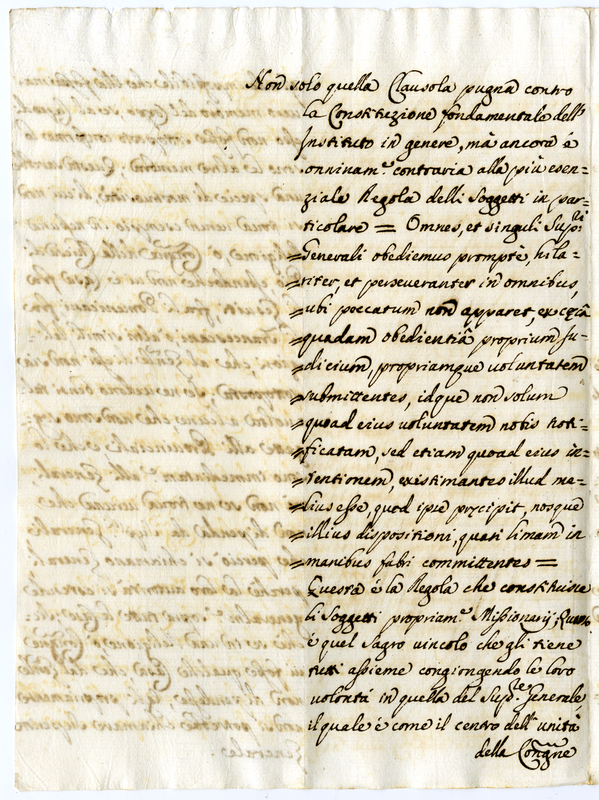 Non solo quella Clausola pugna contro
la Constituzione fondamentale dell'
Instituto in genere, mà ancora é
onninam.e contraria alla più esen=
ziale Regola delli Soggetti in par=
ticolare = Omnes, et singuli Sup:ri
=Generali obediemus promptè, hila=
=riter, et perseveranter in omnibus,
=ubi peccatum non apparet, et cęcâ
=quadam obedientiâ proprium ju=
=dicium, propriamque voluntatem
=submittentes, idque non solum
=quoad eius voluntatem nobis noti=
=ficatam, sed etiam quoad eius in=
=tentionem, existimantes illud me=
=lius esse, quod ipse pręcipit, nosque
=illius dispositioni, quasi limam in
=manibus fabri committentes =
Questa é la Regola che constituisce
li Soggetti propriam.e Missionarij; Questo
é quel Sagro vincolo che gli tiene
tutti assieme congiongendo le loro
volontá in quella del Sup.re Generale,
il quale é come il centro dell' unità
della Congne